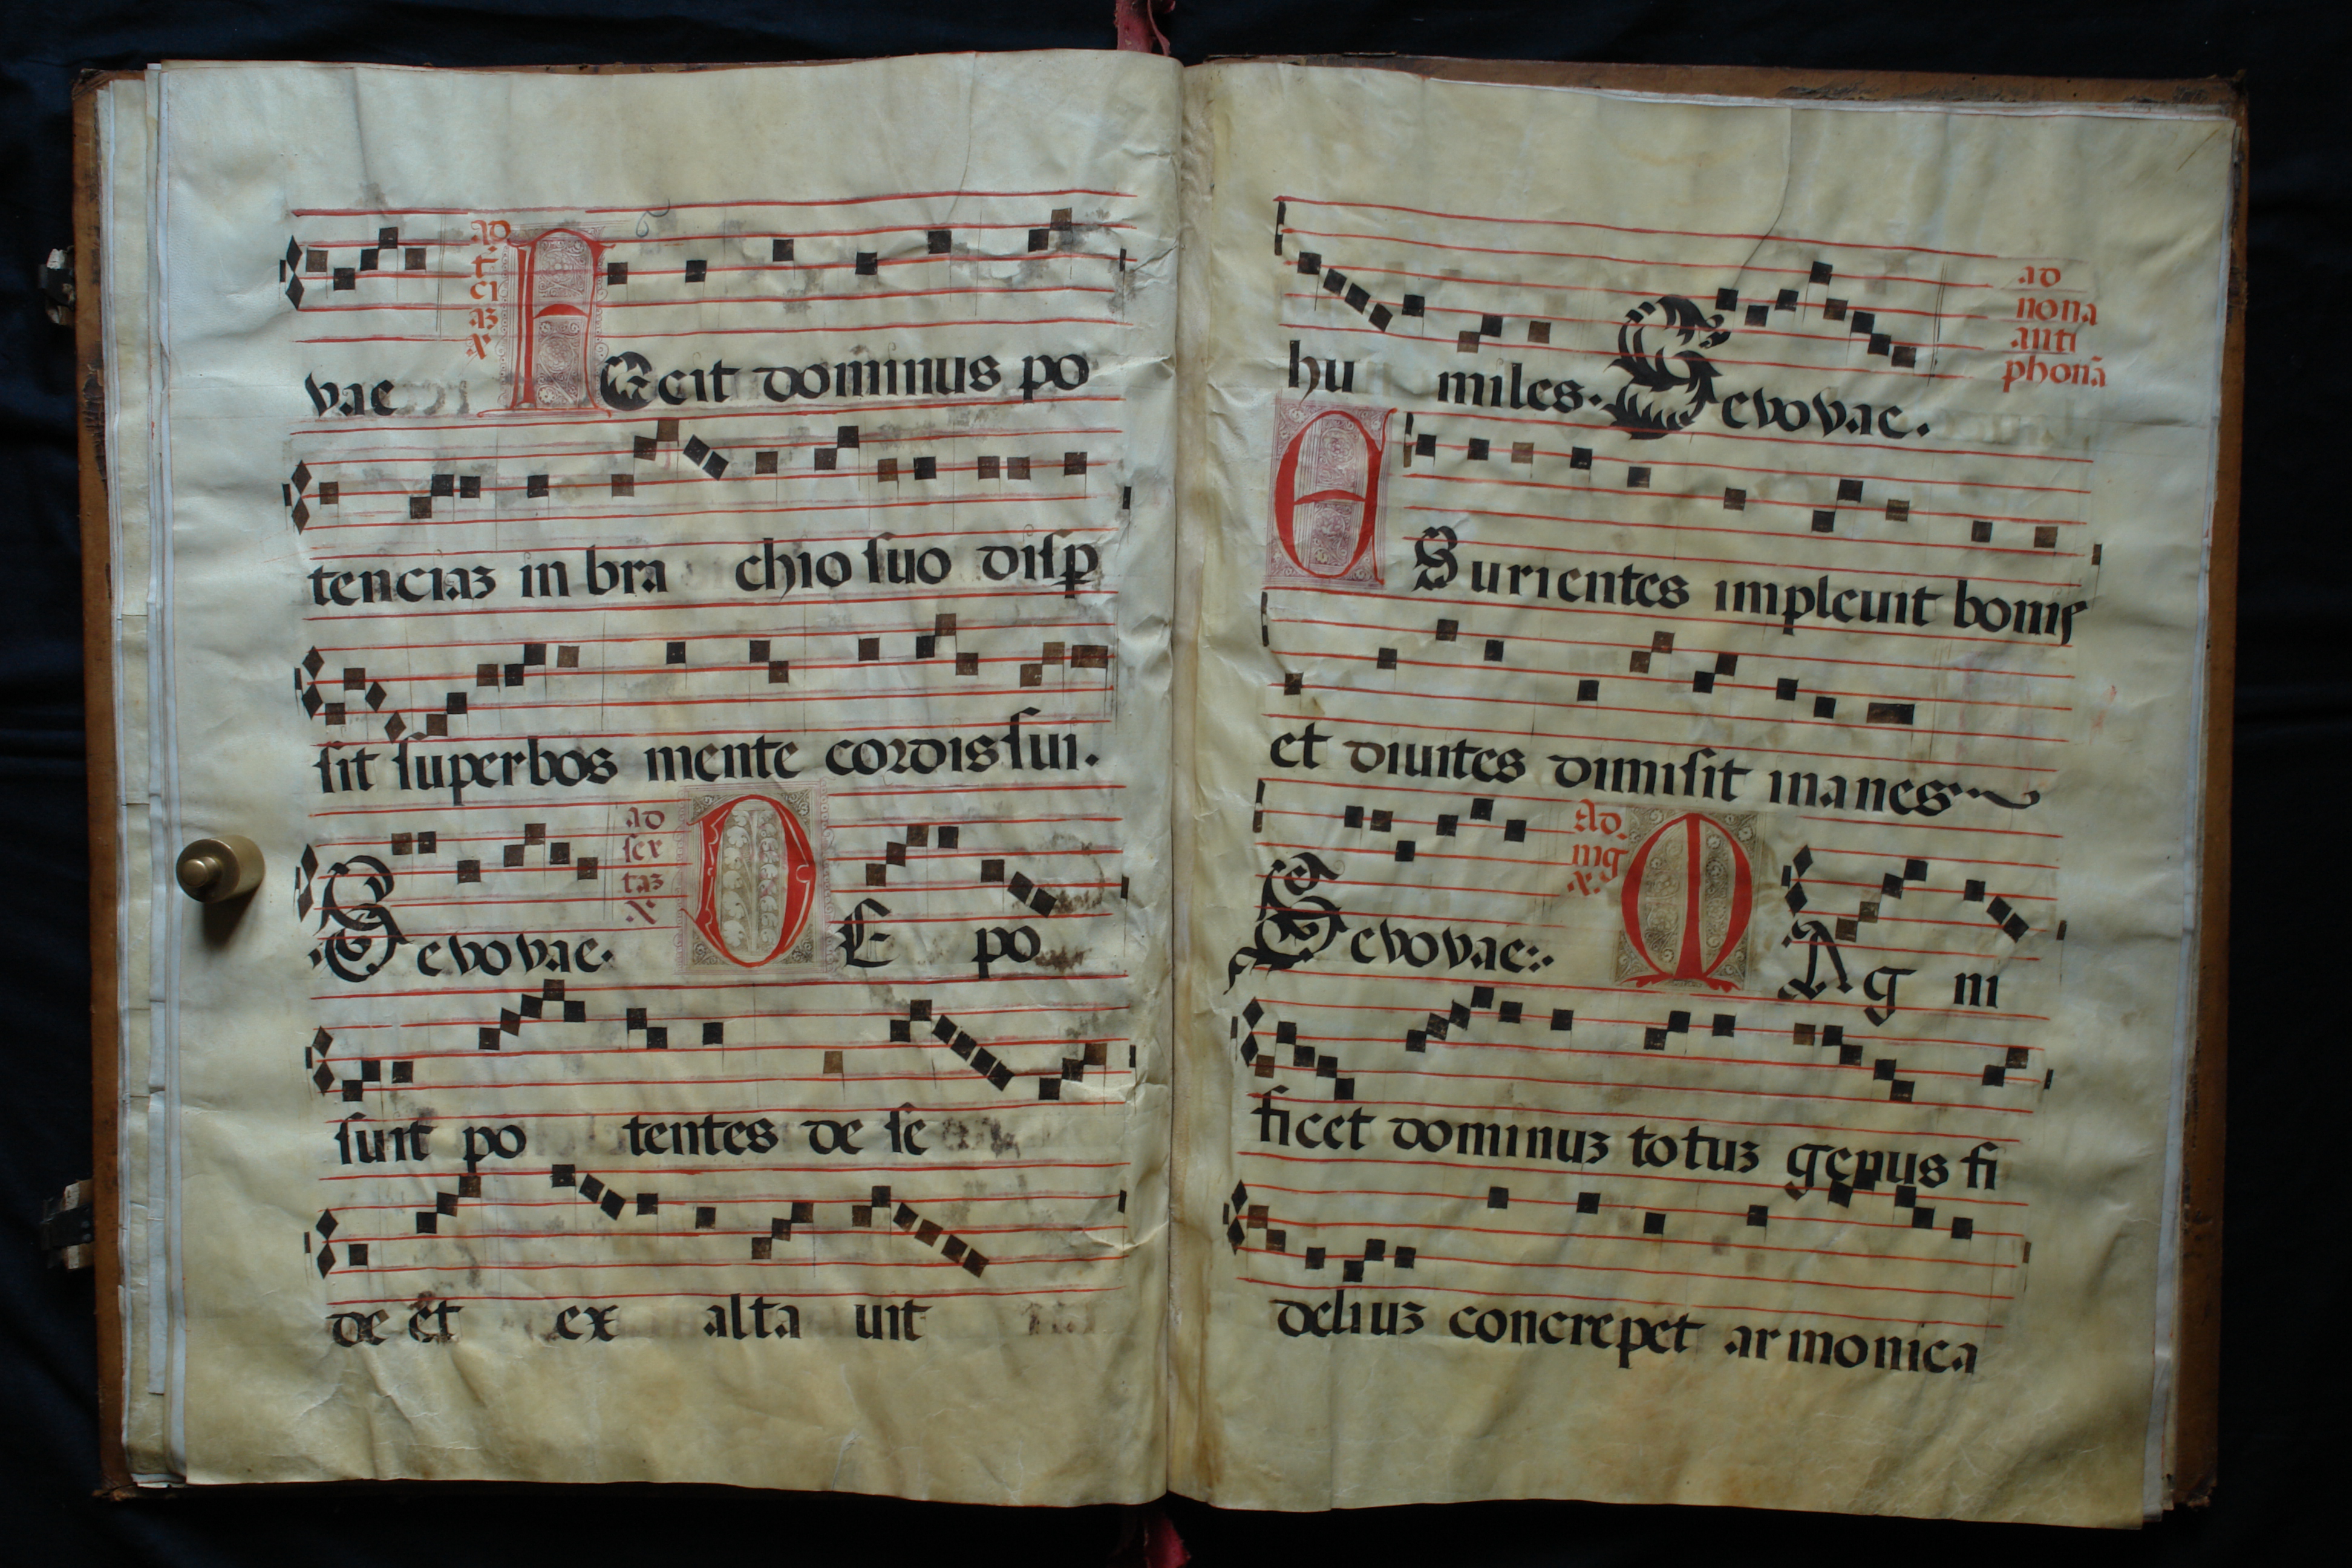 vae ad tciaz x Fecit dominus po
tenciaz in bra chio suo disp
sit superbos mente cordis sui.
Sevovae. ad sextaz x DE po
suit po tentes de se
de et ex alta uit
hu miles. Sevovae. ad nona antiphonā
ESurientes impleuit bonis
et diuites dimisit inanes
Sevovae. Ad mg x. MAg ni
ficet dominuz totuz genus fi
deliuz concrepet armonica